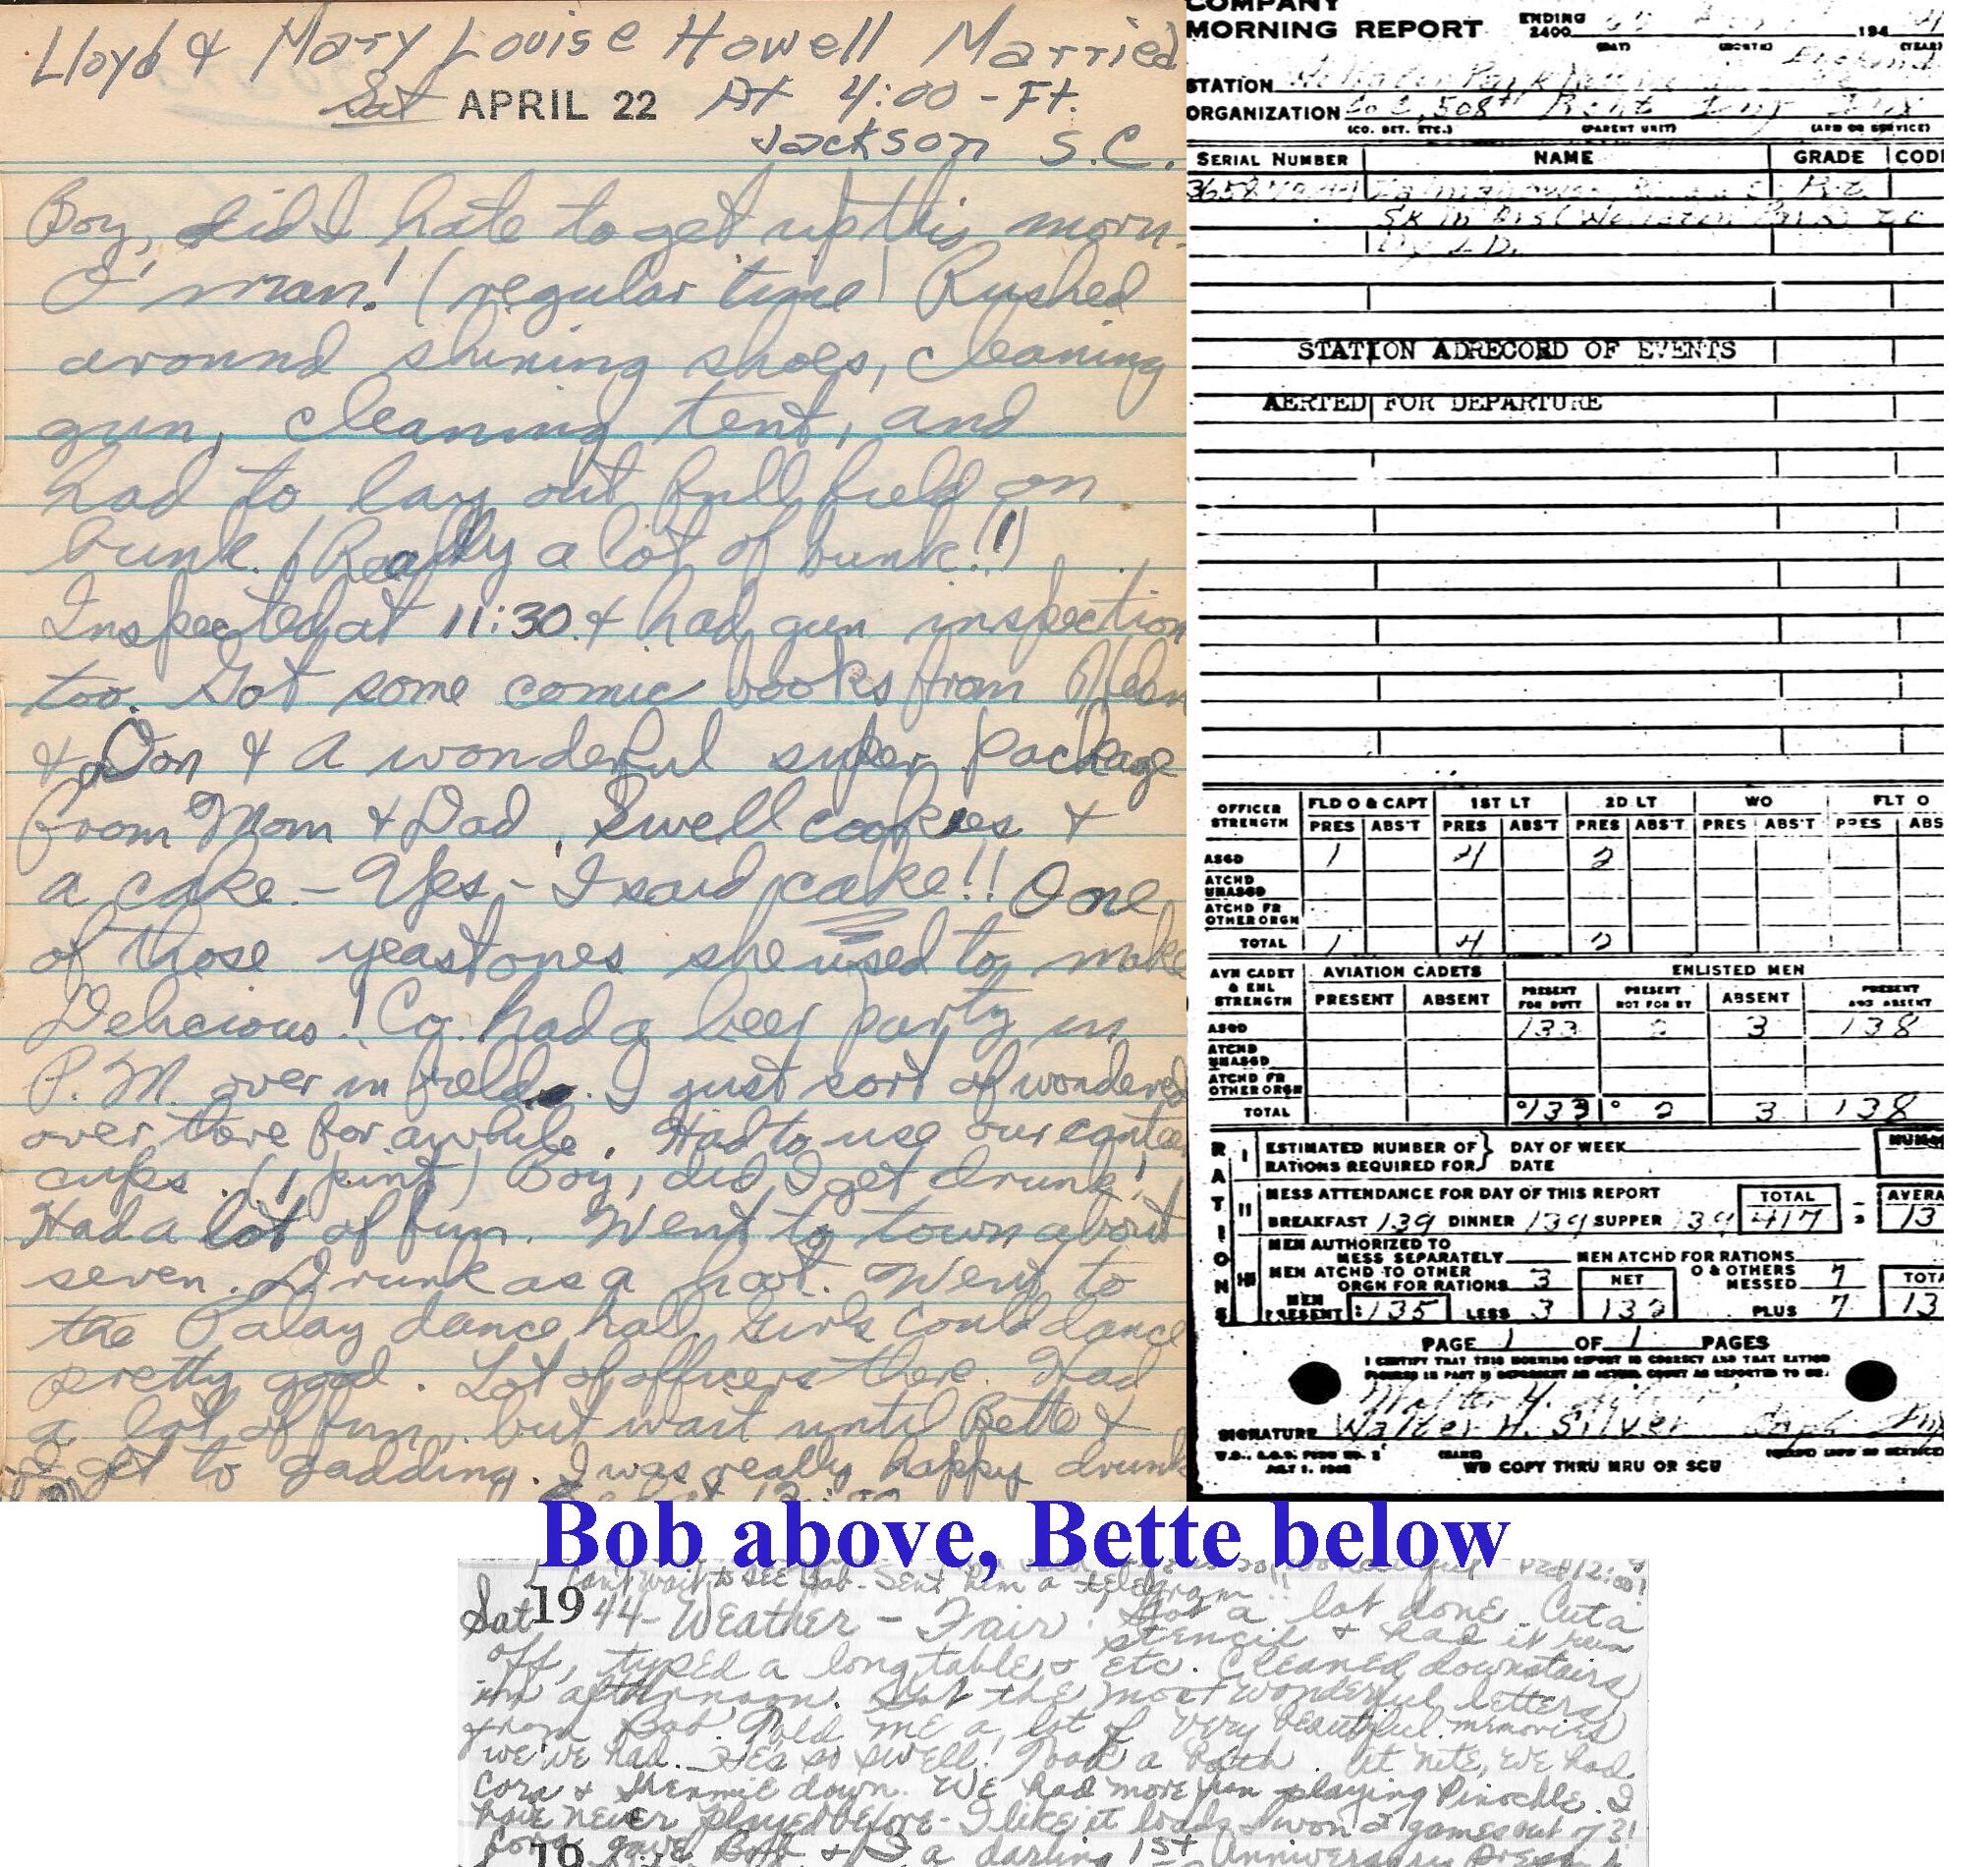 Lloyd & Mary Louise Howell Married
Sat APRIL 22 At 4:00 - Ft.
Jackson S.C.
Boy, did I hate to get up this morn.
O' man! (regular time) Rushed
around shining shoes, cleaning
gun, cleaning tent, and
had to lay out full field on
bunk. (Really a lot of bunk!!)
Inspected at 11:30 & had gun inspection
too. Got some comic books from
& Don & a wonderful super package
from Mom & Dad. Swell cookies &
a cake - Yes - I said cake!! One
of those yeast ones she used to make
Delicious! Co. had a beer party in
P.M. over in field. I just sort of wondered
over there for awhile. Had to use our canteen
cups. (1 pint) Boy, did I get drunk!
Had a lot of fun. Went to town about
seven. Drunk as a hoot. Went to
the Palay dance hall. Girls could dance
pretty good. Lot of officers there. Had
a lot of fun, but wait until Bette &
I get to gadding. I was really happy drunk
COMPANY
MORNING REPORT ENDING 2400 194
(DAY) (MONTH) (YEAR)
STATION Park England
ORGANIZATION Co C, 508th
(CO. DET. ETC.) (PARENT UNIT) (ARM OR SERVICE)
SERIAL NUMBER NAME GRADE CODE
STATION AD RECORD OF EVENTS
AERTED FOR DEPARTURE
OFFICER STRENGTH FLD O & CAPT 1ST LT 2D LT WO FLT O
PRES ABS'T PRES ABS'T PRES ABS'T PRES ABS'T PRES ABS
ASGD 1 4 2
ATCHD UNASGD
ATCHD FR OTHER ORGN
TOTAL 1 4 2
AVN CADET & ENL STRENGTH AVIATION CADETS ENLISTED MEN
PRESENT ABSENT PRESENT FOR DUTY PRESENT NOT FOR DY ABSENT PRESENT AND ABSENT
ASGD 133 2 3 138
ATCHD UNASGD
ATCHD FR OTHER ORGN
TOTAL 133 2 3 138
RATIONS
I ESTIMATED NUMBER OF RATIONS REQUIRED FOR } DAY OF WEEK
DATE
II MESS ATTENDANCE FOR DAY OF THIS REPORT TOTAL AVERA
BREAKFAST 139 DINNER 139 SUPPER 139 417 13
III MEN AUTHORIZED TO MESS SEPARATELY MEN ATCHD FOR RATIONS
MEN ATCHD TO OTHER ORGN FOR RATIONS 3 NET O & OTHERS MESSED 7 TOTA
MEN PRESENT 135 LESS 3 132 PLUS 7 13
PAGE 1 OF 1 PAGES
I CERTIFY THAT THIS MORNING REPORT IS CORRECT AND THAT RATION
FIGURES IN PART II REPRESENT AN ACTUAL COUNT AS REPORTED TO ME.
Walter H. Silver
SIGNATURE Walter H. Silver Capt Inf
W.D., A.G.O. FORM NO. 1
JULY 1, 1943 WD COPY THRU MRU OR SCU
Bob above, Bette below
Can't wait to see Bob. Sent him a telegram!!
Sat 1944 - Weather - Fair. Got a lot done. Cut a
stencil & had it run
off, typed a long table & etc. Cleaned downstairs
in afternoon. Got the most wonderful letters
from Bob. Told me a lot of very beautiful memories
we've had. He's so swell! Took a bath. At nite, we had
Cora & down. We had more fun playing Pinochle. I
have never played before - I like it loads & won 2 games out of 3!
Cora gave Bob & I a darling 1st Anniversary
19